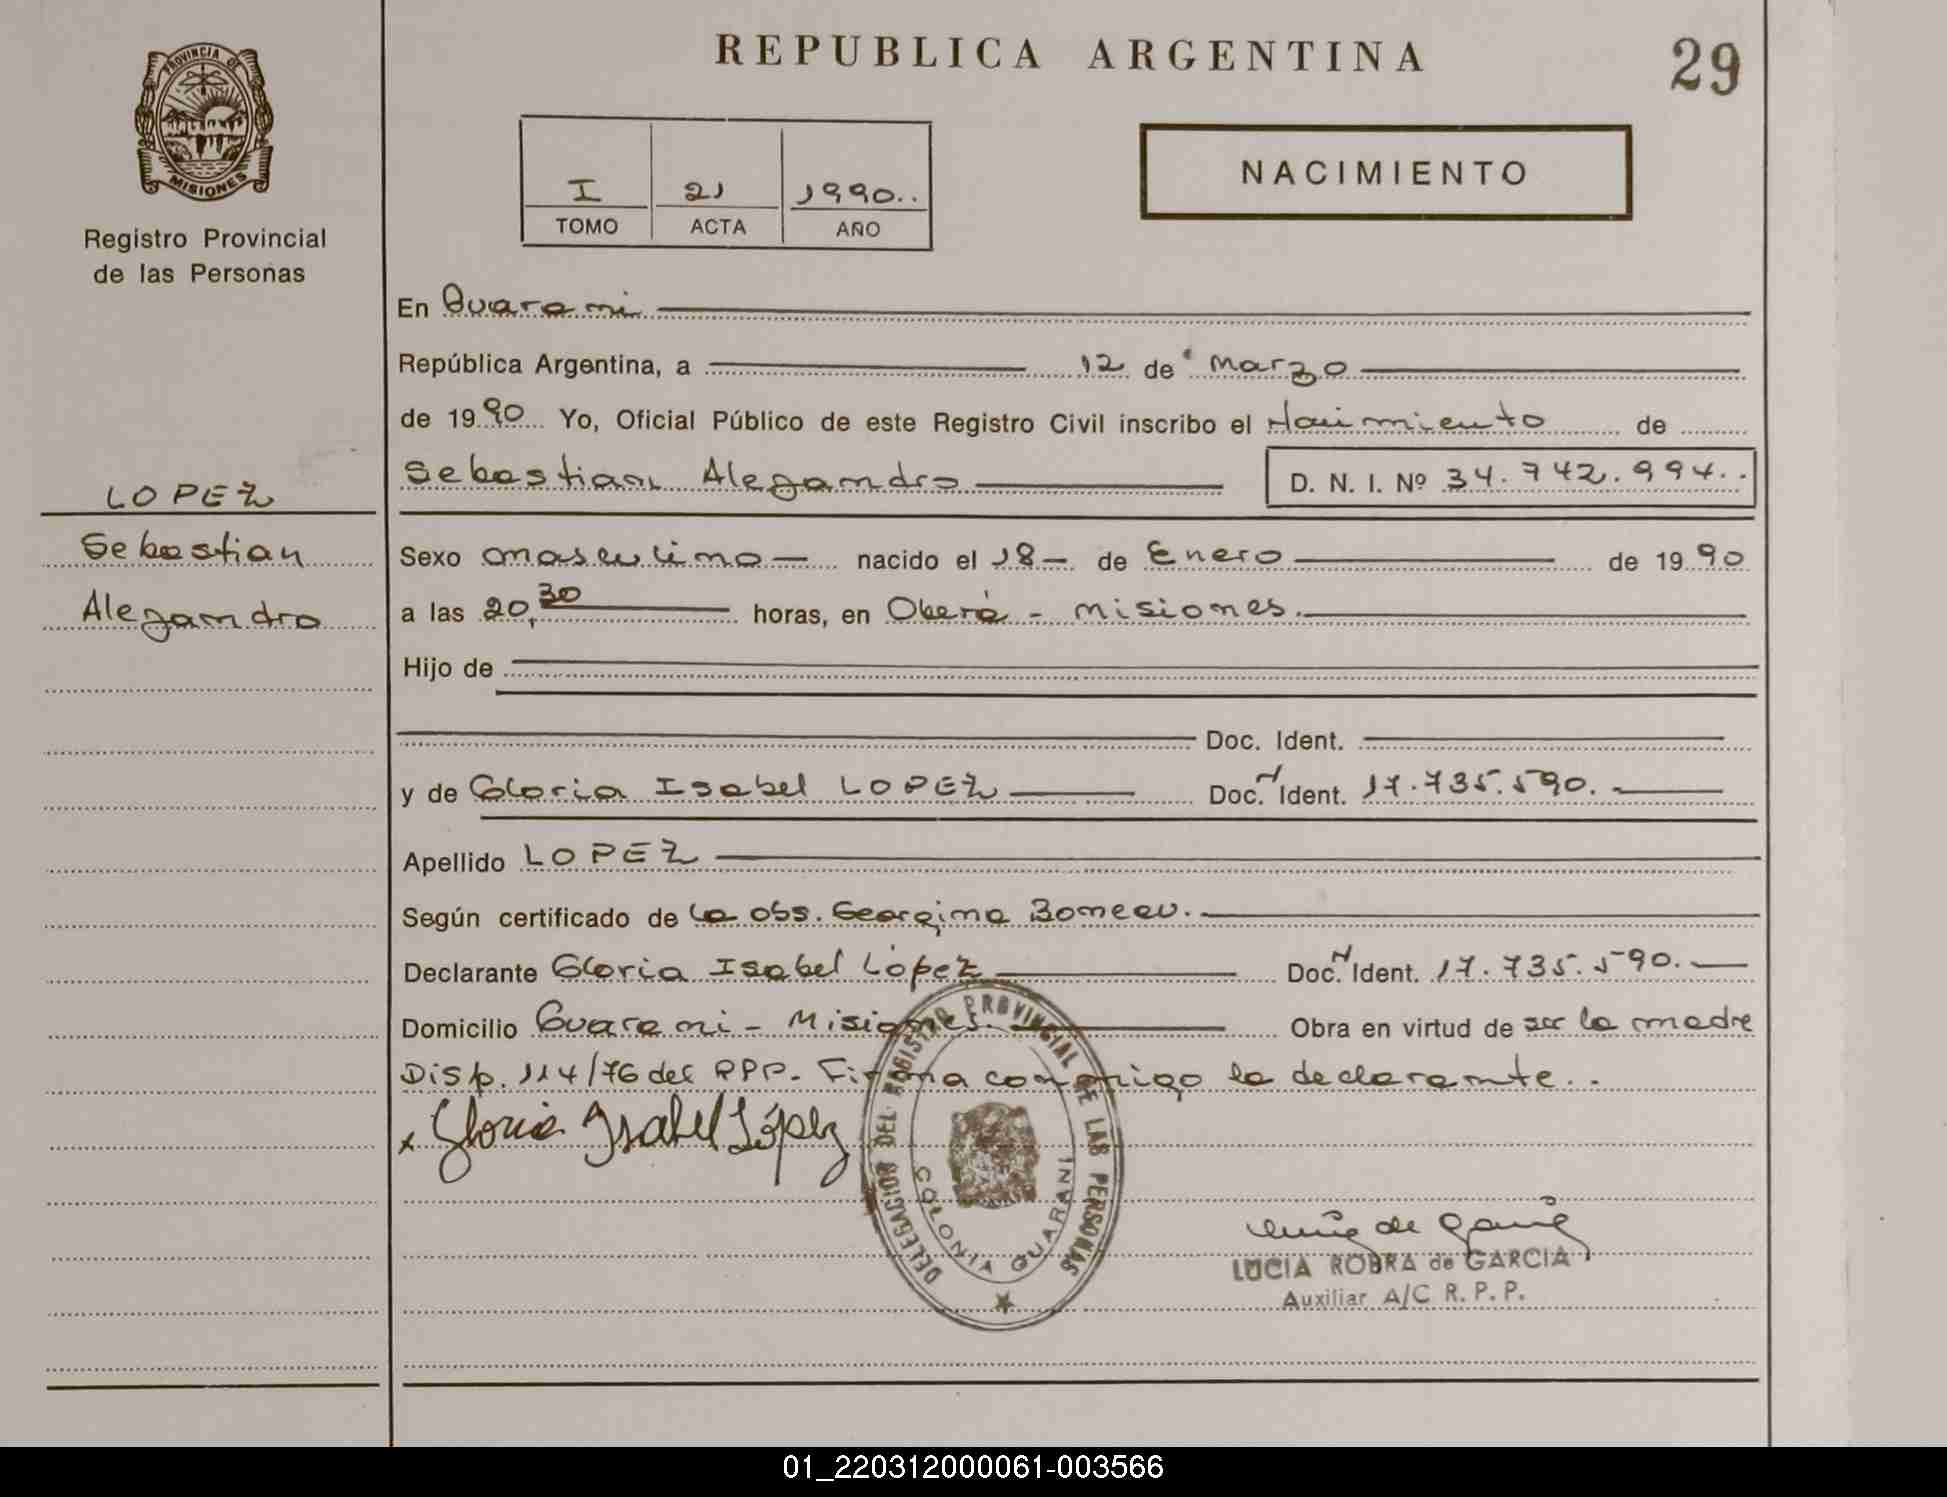 REPUBLICA ARGENTINA
29
PROVINCIA DE
MISIONES
Registro Provincial
de las Personas
I 21 1990..
TOMO ACTA AÑO
NACIMIENTO
En Guarani
República Argentina, a 12 de Marzo
de 1990 Yo, Oficial Público de este Registro Civil inscribo el Nacimiento de
Sebastian Alejandro D. N. I. Nº 34.742.994..
LOPEZ
Sebastian
Alejandro
Sexo masculino nacido el 18 de Enero de 1990
a las 20,30 horas, en Oberá - Misiones.
Hijo de
Doc. Ident.
y de Gloria Isabel LOPEZ Doc. N Ident. 17.735.590.
Apellido LOPEZ
Según certificado de la obs. Georgina
Declarante Gloria Isabel López Doc. N Ident. 17.735.590.
Domicilio Guarani - Misiones. Obra en virtud de ser la madre
Disp. 114/76 del RPP. Firma conmigo la declarante..
x Gloria Isabel López
DELEGACION DEL REGISTRO PROVINCIAL DE LAS PERSONAS
COLONIA GUARANI
LUCIA ROBRA de GARCIA
Auxiliar A/C R. P. P.
01_220312000061-003566